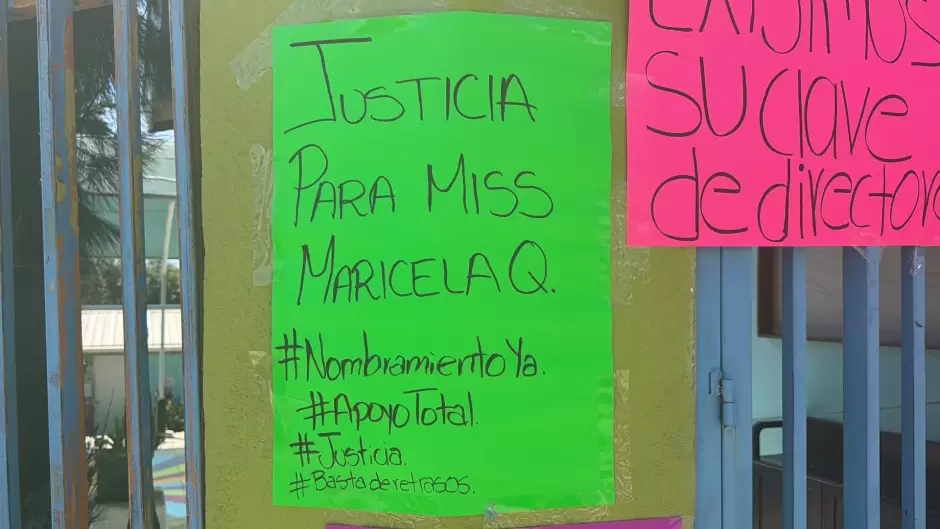 JUSTICIA
PARA MISS
MARICELA Q.
#NombramientoYa.
#ApoyoTotal.
#Justicia.
#Bastaderetrasos.
EXIJIMOS
SU clave
de director